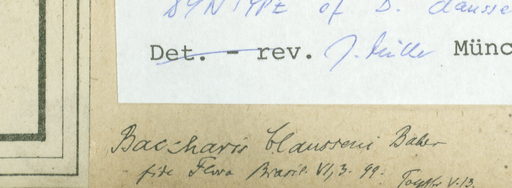 SYNTYPE of B. clausse
Det. - rev. J. Müller Münc
Baccharis Claussenii Baker
fide Flora Brasil. VI,3. 99.
V.13.